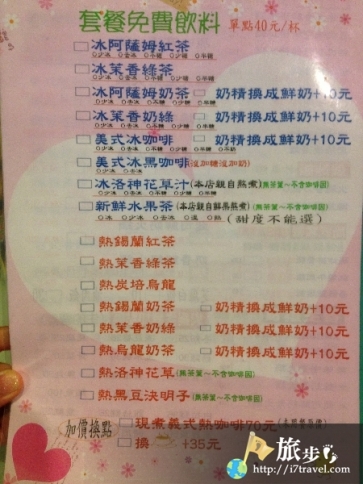 套餐免費飲料 單點40元/杯
冰阿薩姆紅茶
冰茉香綠茶
冰阿薩姆奶茶 奶精換成鮮奶+10元
冰茉香奶綠 奶精換成鮮奶+10元
美式冰咖啡 奶精換成鮮奶+10元
美式冰黑咖啡(沒加糖沒加奶)
冰洛神花草汁(本店親自熬煮)(無茶葉~不含咖啡因)
新鮮水果茶(本店親自鮮果熬煮)(無茶葉~不含咖啡因)
(甜度不能選)
熱錫蘭紅茶
熱茉香綠茶
熱炭培烏龍
熱錫蘭奶茶 奶精換成鮮奶+10元
熱茉香奶綠 奶精換成鮮奶+10元
熱烏龍奶茶 奶精換成鮮奶+10元
熱洛神花草(無茶葉~不含咖啡因)
熱黑豆決明子(無茶葉~不含咖啡因)
加價換點 現煮義式熱咖啡70元
換 +35元
旅步
http://i7travel.com